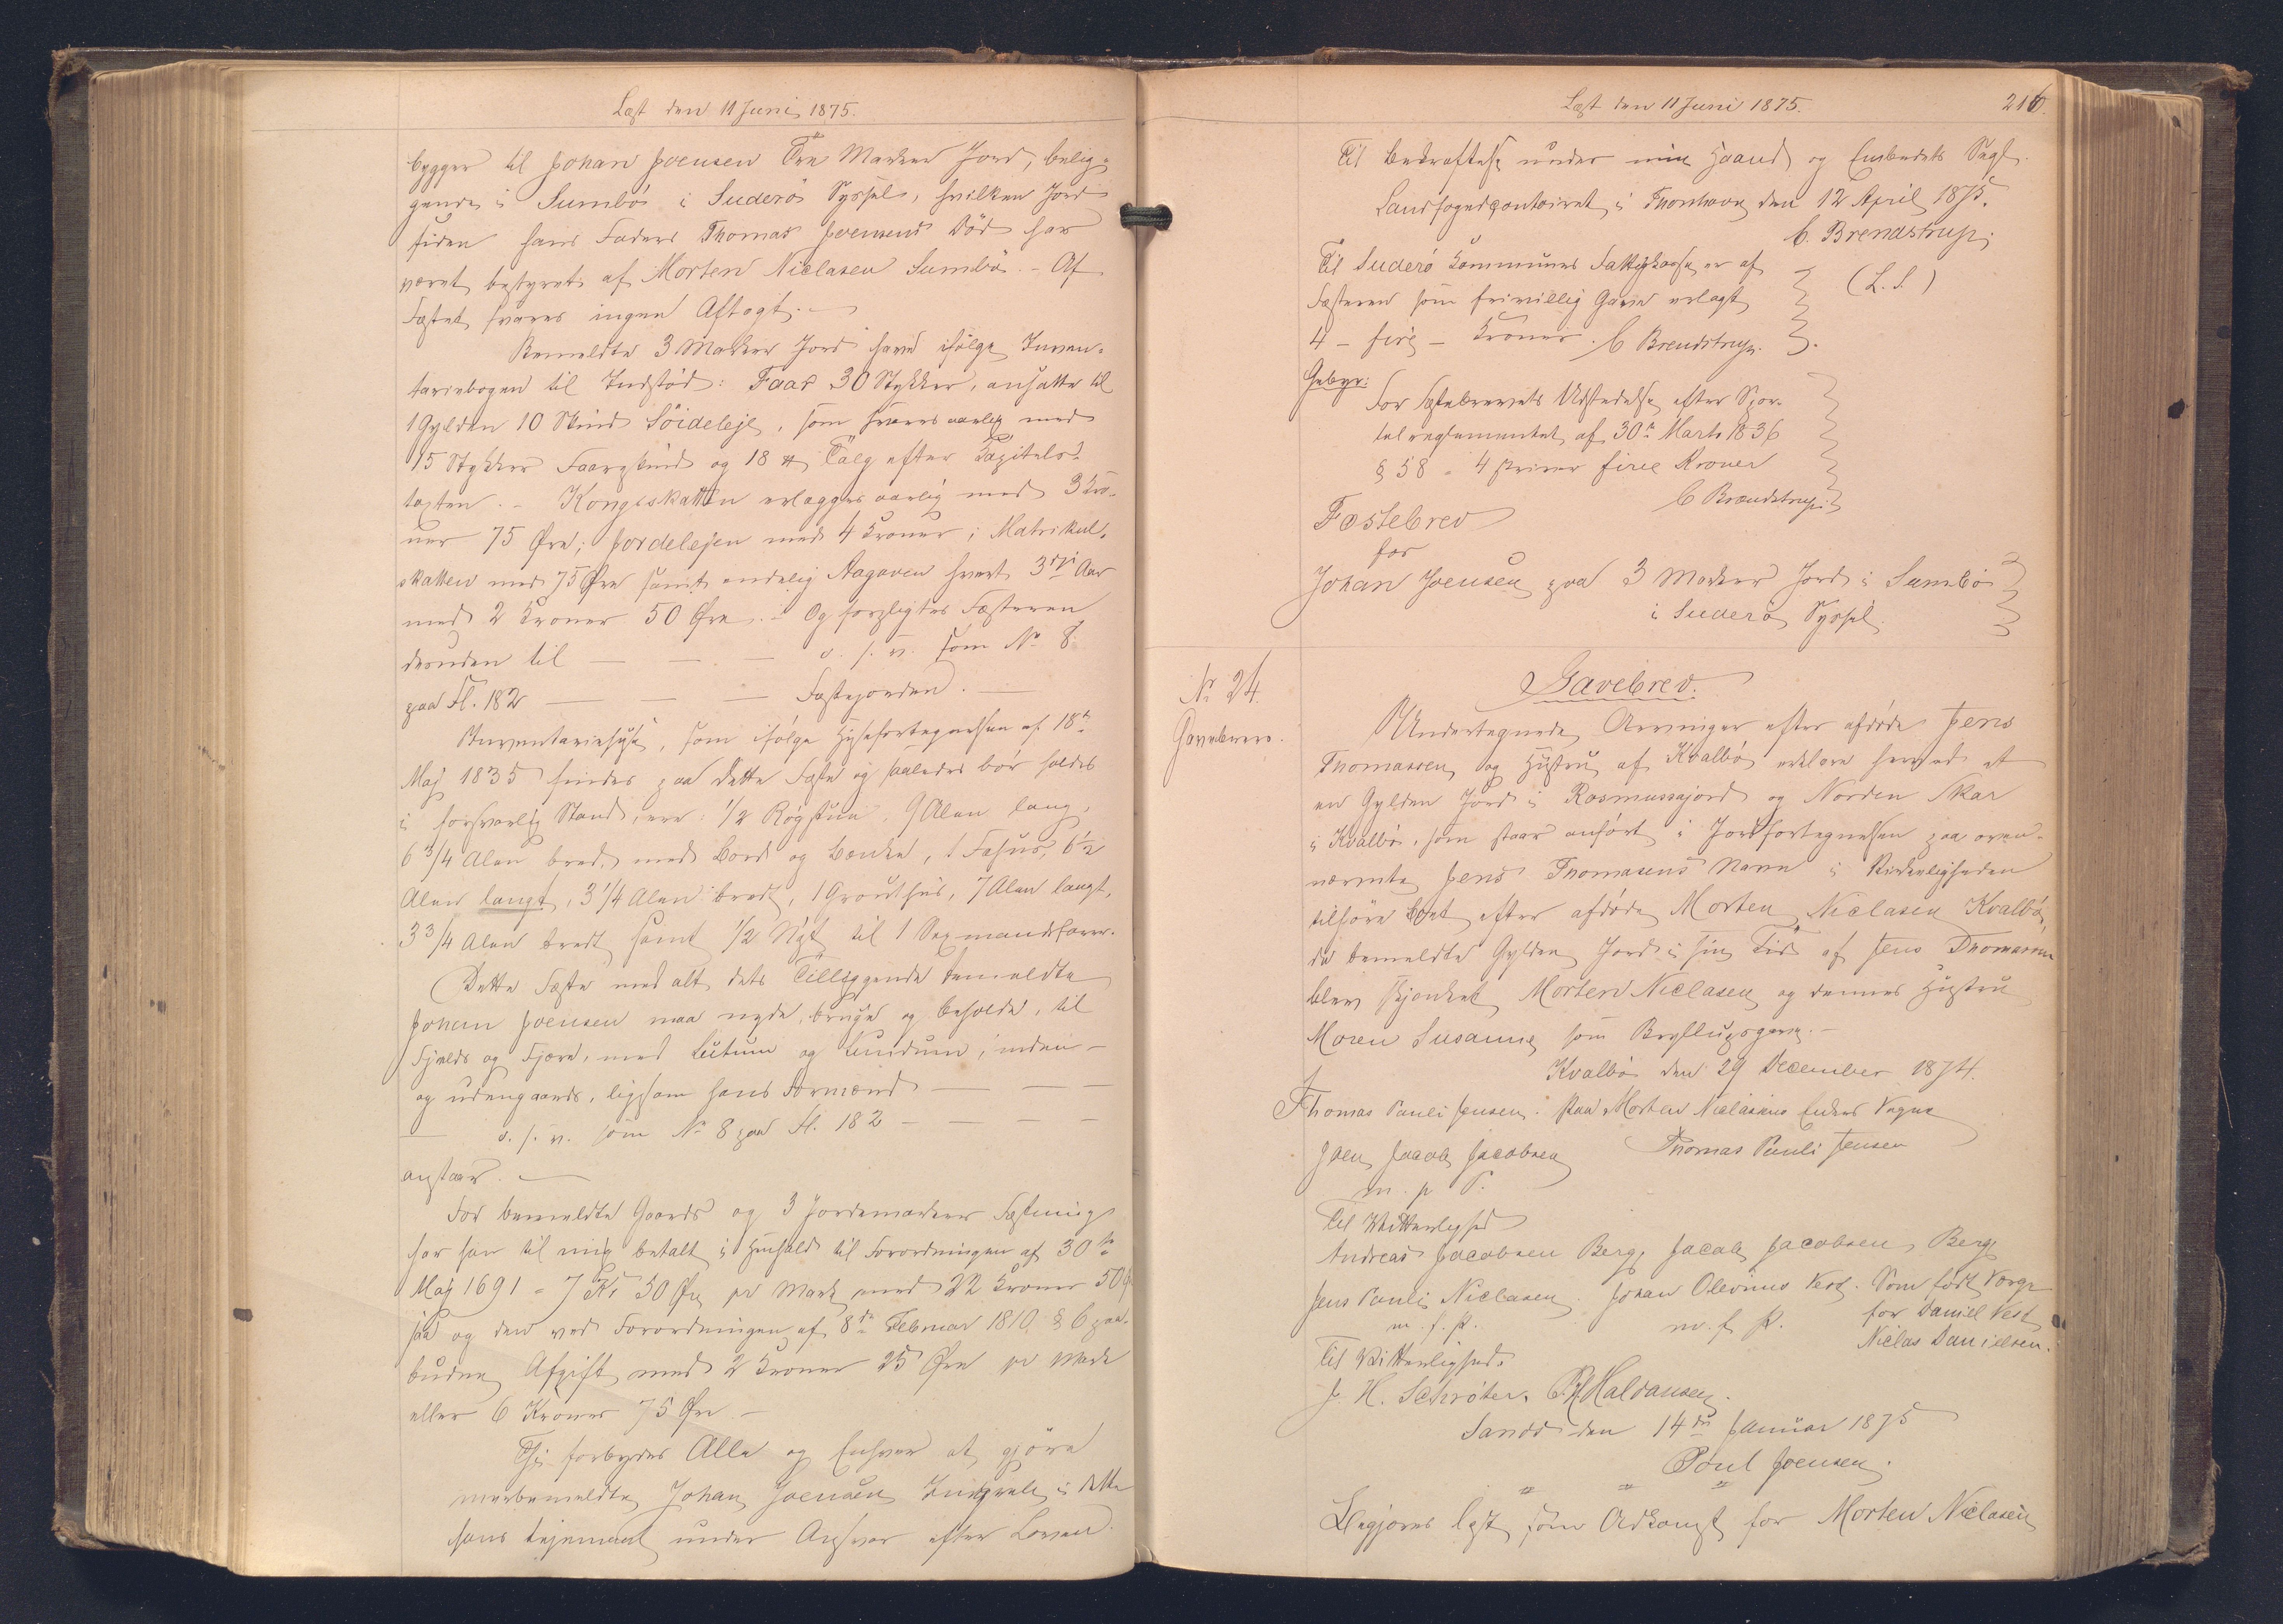 Læst den 11 Juni 1875.
bygger til Johan Joensen Tre Marker Jord, belig-
gende i Sumbö i Suderö Syssel, hvilken Jord
siden hans Faders Thomas Joensens Död har
været bestyret af Morten Niclasen Sumbö. - Af
Fæstet svares ingen Aftægt. -
Bemeldte 3 Marker Jord have ifölge Inven-
tariebogen til Indstöd: Faar 30 Stykker, ansatte til
1 Gylden 10 Skind Söideleje, som svares aarlig med
15 Stykker Faareskind og 18 ℔ Talg efter Kapitels-
taxten. - Kongeskatten erlægges aarlig med 3 Kro-
ner 75 Öre; Jordelejen med 4 Kroner; Matrikul-
skatten med 75 Öre samt endelig Aagaven hvert 3die Aar
med 2 Kroner 50 Öre. - Og forpligtes Fæsteren
desuden til — — — o. s. v. som No 8
paa Fl. 182 — — — Fæstejorden. —
Inventariehuse, som ifölge Husefortegnelsen af 18de
Maj 1835 findes paa dette Fæste og saaledes bör holdes
i forsvarlig Stand, ere: 1/2 Rögstue, 9 Alen lang,
6 3/4 Alen bred, med Bord og Bænke, 1 Fæhus, 6 1/2
Alen langt, 3 1/4 Alen bredt, 1 Grouthus, 7 Alen langt,
3 3/4 Alen bredt samt 1/2 Nöst til 1 Sexmandsfarer.
Dette Fæste med alt dets Tilliggende bemeldte
Johan Joensen maa nyde, bruge og beholde, til
Fjelds og Fjære, med Luttum og Lundum, inden-
og udengaards, ligesom hans Formænd — — —
— o. s. v. som No 8 paa Fl. 182 - - - -
anstaar. —
For bemeldte Gaards og 3 Jordemarkers Fæstning
har han til mig betalt i Henhold til Forordningen af 30te
Maj 1691 - 7 Kr 50 Öre pr Mark med 22 Kroner 50 Ö
saa og den ved Forordningen af 8de Februar 1810 § 6 paa-
budne Afgift med 2 Kroner 25 Öre pr Mark
eller 6 Kroner 75 Öre -
Thi forbydes Alle og Enhver at gjöre
merbemeldte Johan Joensen Indgreb i dette
hans Lejemaal under Ansvar efter Loven.
Læst den 11 Juni 1875.
216.
Til Bekræftelse under min Haand og Embedets Segl.
Landfogedcontoiret i Thorshavn den 12 April 1875.
C. Brendstrup.
Til Suderö Kommunes Fattigkasse er af
Fæsteren som frivillig Gave erlagt
4 - fire - Kroner. C Brendstrup.
(L. S.)
Gebyr:
For Fæstebrevets Udstedelse efter Spor-
telreglementet af 30te Marts 1836
§ 58 - 4 skriver fire Kroner
C Brendstrup.
Fæstebrev
for
Johan Joensen paa 3 Marker Jord i Sumbö
i Suderö Syssel.
Nr 24.
Gavebrev.
Gavebrev.
Undertegnede Arvinger efter afdöde Jens
Thomassen og Hustru af Kvalbö erklære herved at
en Gylden Jord i Rasmussajord og Norden Skar
i Kvalbö, som staar anfört i Jordfortegnelsen paa oven-
nævnte Jens Thomasens Navn i Virkeligheden
tilhöre Boet efter afdöde Morten Niclasen Kvalbö,
da bemeldte Gylden Jord i sin Tid af Jens Thomasen
blev skjenket Morten Niclasen og dennes Hustru
Maren Susanne som Bryllupsgave. -
Kvalbö den 29 December 1874.
Thomas Pauli Jensen. Paa Morten Niclasens Enkes Vegne
Joen Jacob Jacobsen Thomas Pauli Jensen
m. p P.
Til Vitterlighed
Andreas Jacobsen Berg, Jacob Jacobsen Berg
Jens Pauli Niclasen. Johan Olevinus Vest. Som född Værge
m. f. P. m. f P. for Daniel Vest
Niclas Danielsen.
Til Vitterlighed:
J. H. Schröter. P. H. Haldansen.
Sand den 14de Januar 1875
Poul Joensen.
Begjæres læst som Adkomst for Morten Niclasen